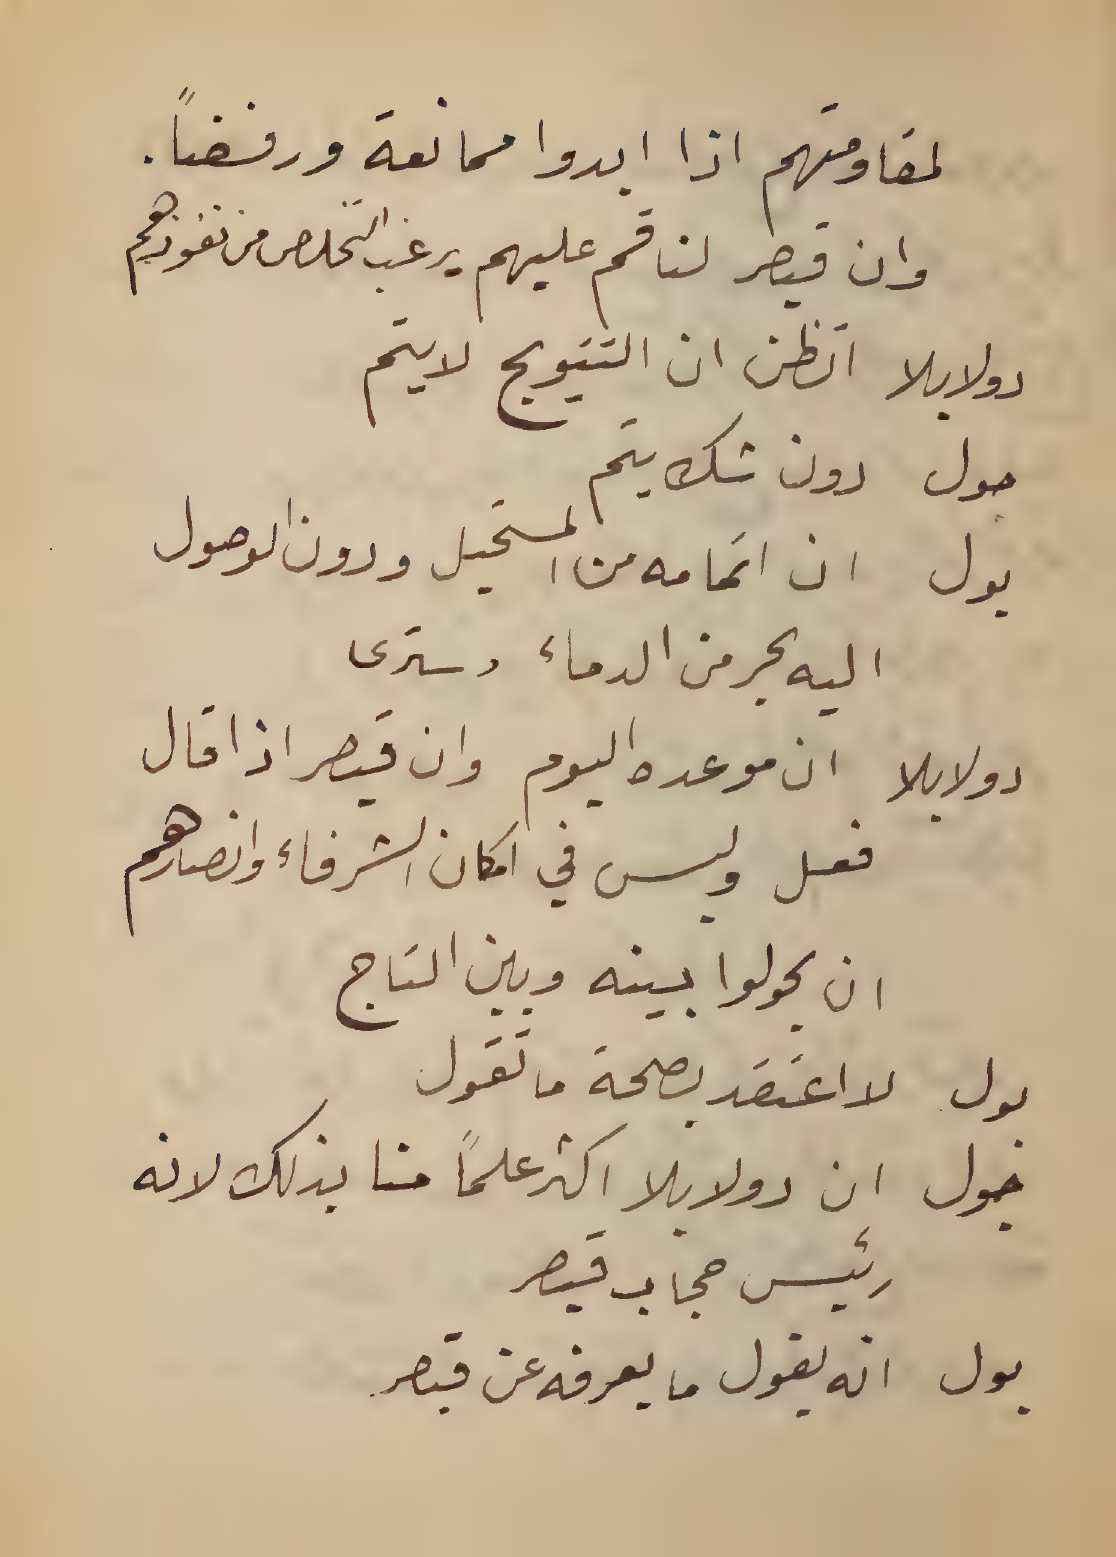 لمقاومتهم اذا ابدوا ممانعة ورفضاً.
وان قيصر لناقم عليهم يرغب التخلص من نفوذهم
دولابلا اتظن ان التتويج لا يتم
جول دون شك يتم
بول ان اتمامه من المستحيل ودون الوصول
اليه بحر من الدماء وسترى
دولابلا ان موعده اليوم وان قيصر اذا قال
فعل وليس في امكان الشرفاء وانصارهم
ان يحولوا بينه وبين التاج
بول لا اعتقد بصحة ما تقول
جول ان دولابلا اكثر علماً منا بذلك لانه
رئيس حجاب قيصر
بول انه يقول ما يعرفه عن قيصر